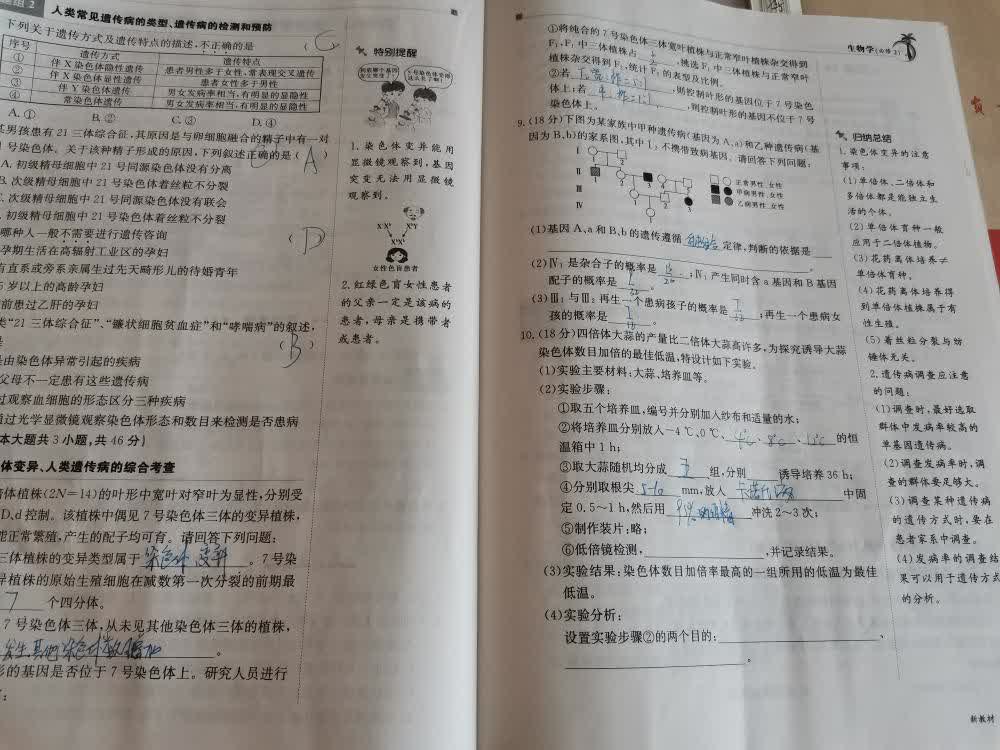 人类常见遗传病的类型、遗传病的检测和预防
下列关于遗传方式及遗传特点的描述,不正确的是 ( C
序号 遗传方式 遗传特点
① 伴X染色体隐性遗传 患者男性多于女性,常表现交叉遗传
② 伴X染色体显性遗传 患者女性多于男性
③ 伴Y染色体遗传 男女发病率相当,有明显的显隐性
④ 常染色体遗传 男女发病率相当,有明显的显隐性
A.① B.② C.③ D.④
某男孩患有21三体综合征,其原因是与卵细胞融合的精子中有一对
号染色体。关于该种精子形成的原因,下列叙述正确的是( A
A.初级精母细胞中21号同源染色体没有分离
B.次级精母细胞中21号染色体着丝粒不分裂
C.次级精母细胞中21号同源染色体没有联会
初级精母细胞中21号染色体着丝粒不分裂
哪种人一般不需要进行遗传咨询 ( D )
孕期生活在高辐射工业区的孕妇
有直系或旁系亲属生过先天畸形儿的待婚青年
5岁以上的高龄孕妇
前患过乙肝的孕妇
类“21三体综合征”、“镰状细胞贫血症”和“哮喘病”的叙述,
是 ( B )
是由染色体异常引起的疾病
父母不一定患有这些遗传病
过观察血细胞的形态区分三种疾病
通过光学显微镜观察染色体形态和数目来检测是否患病
本大题共3小题,共46分)
体变异、人类遗传病的综合考查
倍体植株(2N=14)的叶形中宽叶对窄叶为显性,分别受
D、d控制。该植株中偶见7号染色体三体的变异植株,
能正常繁殖,产生的配子均可育。请回答下列问题:
三体植株的变异类型属于 染色体变异 。7号染
异植株的原始生殖细胞在减数第一次分裂的前期最
7 个四分体。
7号染色体三体,从未见其他染色体三体的植株,
发生其他染色体数 。
形的基因是否位于7号染色体上。研究人员进行
特别提醒
1.染色体变异能用
显微镜观察到,基因
突变无法用显微镜
观察到。
女性色盲患者
2.红绿色盲女性患者
的父亲一定是该病的
患者,母亲是携带者
或患者。
生物学(必修2)
①将纯合的7号染色体三体宽叶植株与正常窄叶植株杂交得到
F₁,F₁中三体植株占 ,挑选F₁中三体植株与正常窄叶
植株杂交得到F₂,统计F₂的表型及比例。
②若 ,则控制叶形的基因位于7号染色
体上;若 ,则控制叶形的基因不位于7号
染色体上。
9.(18分)下图为某家族中甲种遗传病(基因为A、a)和乙种遗传病(基
因为B、b)的家系图,其中Ⅰ₁不携带致病基因。请回答下列问题:
Ⅰ
Ⅱ
Ⅲ
Ⅳ
正常男性、女性
甲病男性、女性
乙病男性、女性
(1)基因A、a和B、b的遗传遵循 定律,判断的依据是
。
(2)Ⅳ₁是杂合子的概率是 ;Ⅳ₁产生同时含a基因和B基因
配子的概率是 。
(3)Ⅲ₁与Ⅲ₂再生一个患病孩子的概率是 ;再生一个患病女
孩的概率是 。
10.(18分)四倍体大蒜的产量比二倍体大蒜高许多,为探究诱导大蒜
染色体数目加倍的最佳低温,特设计如下实验。
(1)实验主要材料:大蒜、培养皿等。
(2)实验步骤:
①取五个培养皿,编号并分别加入纱布和适量的水;
②将培养皿分别放入-4℃、0℃、 4℃ 、 8℃ 、 12℃ 的恒
温箱中1 h;
③取大蒜随机均分成 5 组,分别 诱导培养36 h;
④分别取根尖 5-10 mm,放入 卡诺氏液 中固
定0.5~1 h,然后用 冲洗2~3次;
⑤制作装片:略;
⑥低倍镜检测, ,并记录结果。
(3)实验结果:染色体数目加倍率最高的一组所用的低温为最佳
低温。
(4)实验分析:
设置实验步骤②的两个目的: 、
。
归纳总结
1.染色体变异的注意
事项:
(1)单倍体、二倍体和
多倍体都是能独立生
活的个体。
(2)单倍体育种一般
应用于二倍体植物。
(3)花药离体培养≠
单倍体育种。
(4)花药离体培养得
到单倍体植株属于有
性生殖。
(5)着丝粒分裂与纺
锤体无关。
2.遗传病调查应注意
的问题:
(1)调查时,最好选取
群体中发病率较高的
单基因遗传病。
(2)调查发病率时,调
查的群体要足够大。
(3)调查某种遗传病
的遗传方式时,要在
患者家系中调查。
(4)发病率的调查结
果可以用于遗传方式
的分析。
新教材